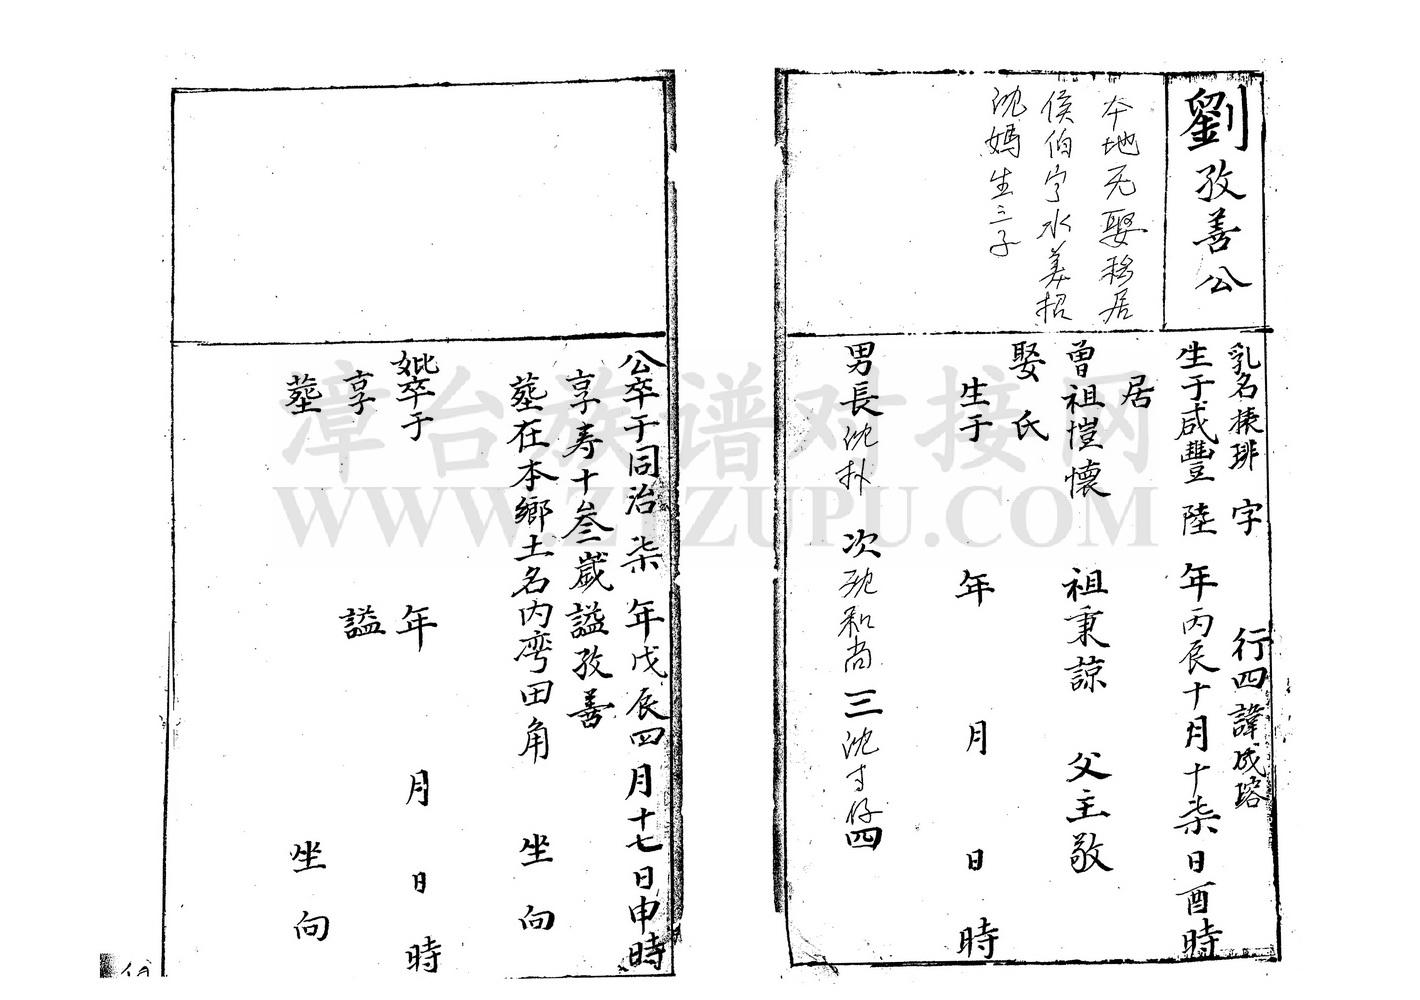 劉孜善公
本地无娶移居
侯伯宁水美招
沈媽生三子
乳名捷琲 字 行四諱成瑢
生于咸豐陸年丙辰十月十柒日酉時
居
曾祖愷懷 祖秉諒 父主敬
娶 氏
生于 年 月 日 時
男長沈朴 次沈和尚 三沈才仔 四
公卒于同治柒年戊辰四月十七日申時
享寿十叁歲謚孜善
葬在本鄉土名内湾田角 坐 向
妣卒于 年 月 日 時
享 謚
葬 坐 向
漳台族谱对接网
WWW.ZTZUPU.COM